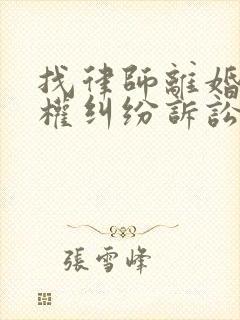 找律師離婚
權纠纷訴訟
張雪峰